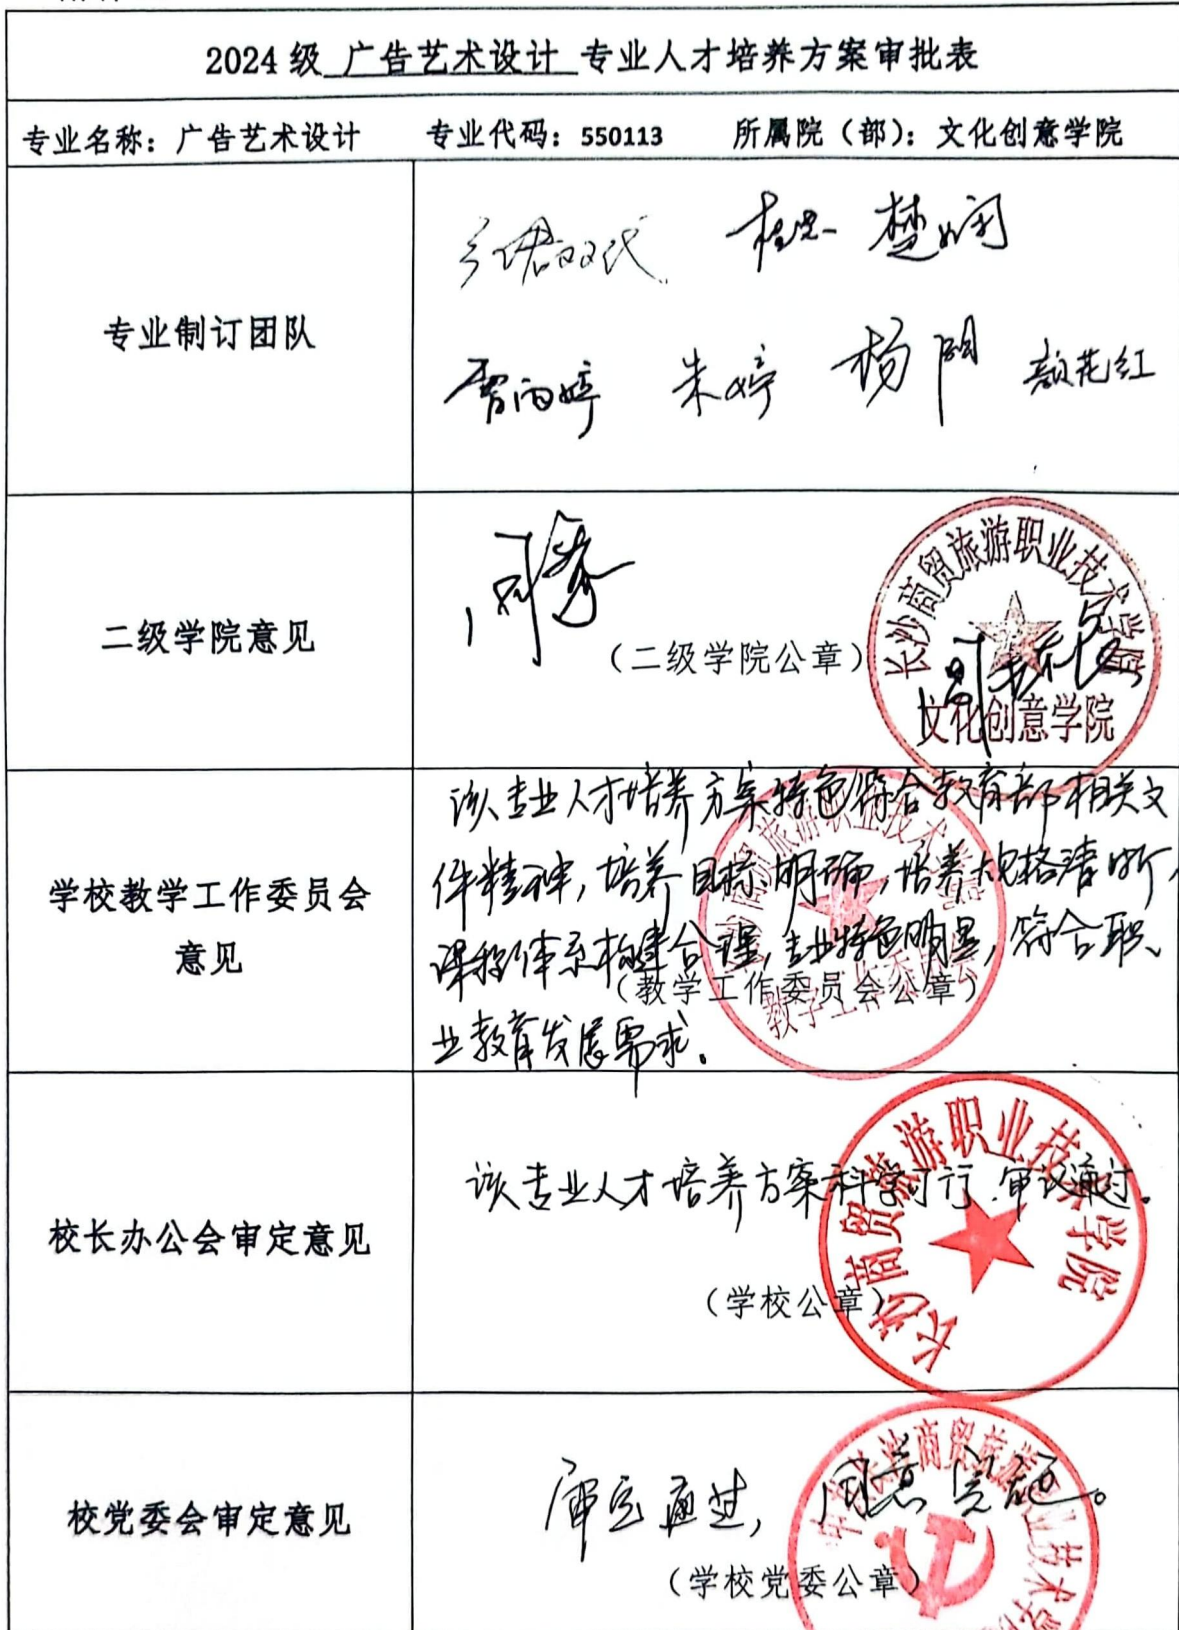 2024级 广告艺术设计 专业人才培养方案审批表
专业名称：广告艺术设计 专业代码：550113 所属院（部）：文化创意学院
专业制订团队
楚
婷 朱婷 杨 颜花红
二级学院意见
（二级学院公章）
长沙商贸旅游职业技术学院
文化创意学院
学校教学工作委员会
意见
该专业人才培养方案特色符合教育部相关文
件精神，培养目标明确，培养规格清晰，
课程体系构建合理，专业特色明显，符合职
业教育发展需求。
（教学工作委员会公章）
长沙商贸旅游职业技术学院
教学工作委员会
校长办公会审定意见
该专业人才培养方案科学可行，审议通过。
（学校公章）
长沙商贸旅游职业技术学院
校党委会审定意见
审定通过，同意实施。
（学校党委公章）
长沙商贸旅游职业技术学